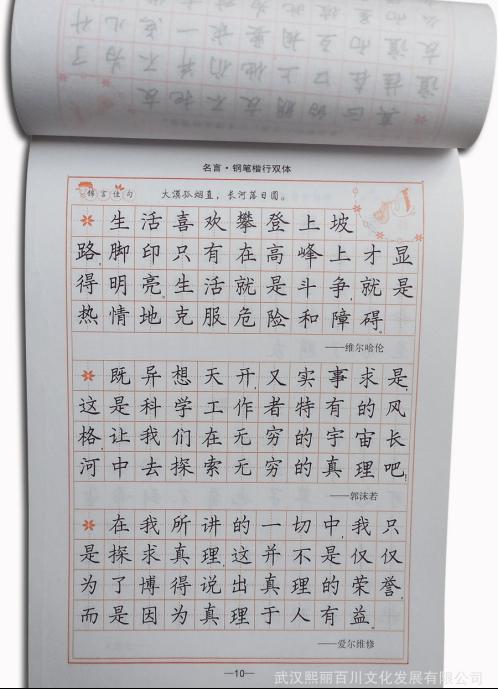 名言·钢笔楷行双体
锦言佳句 大漠孤烟直，长河落日圆。
生活喜欢攀登上坡
路，脚印只有在高峰上才显
得明亮。生活就是斗争，就是
热情地克服危险和障碍。
——维尔哈伦
既异想天开，又实事求是，
这是科学工作者特有的风
格，让我们在无穷的宇宙长
河中去探索无穷的真理吧！
——郭沫若
在我所讲的一切中，我只
是探求真理，这并不是仅仅
为了博得说出真理的荣誉，
而是因为真理于人有益。
——爱尔维修
—10—
武汉熙丽百川文化发展有限公司